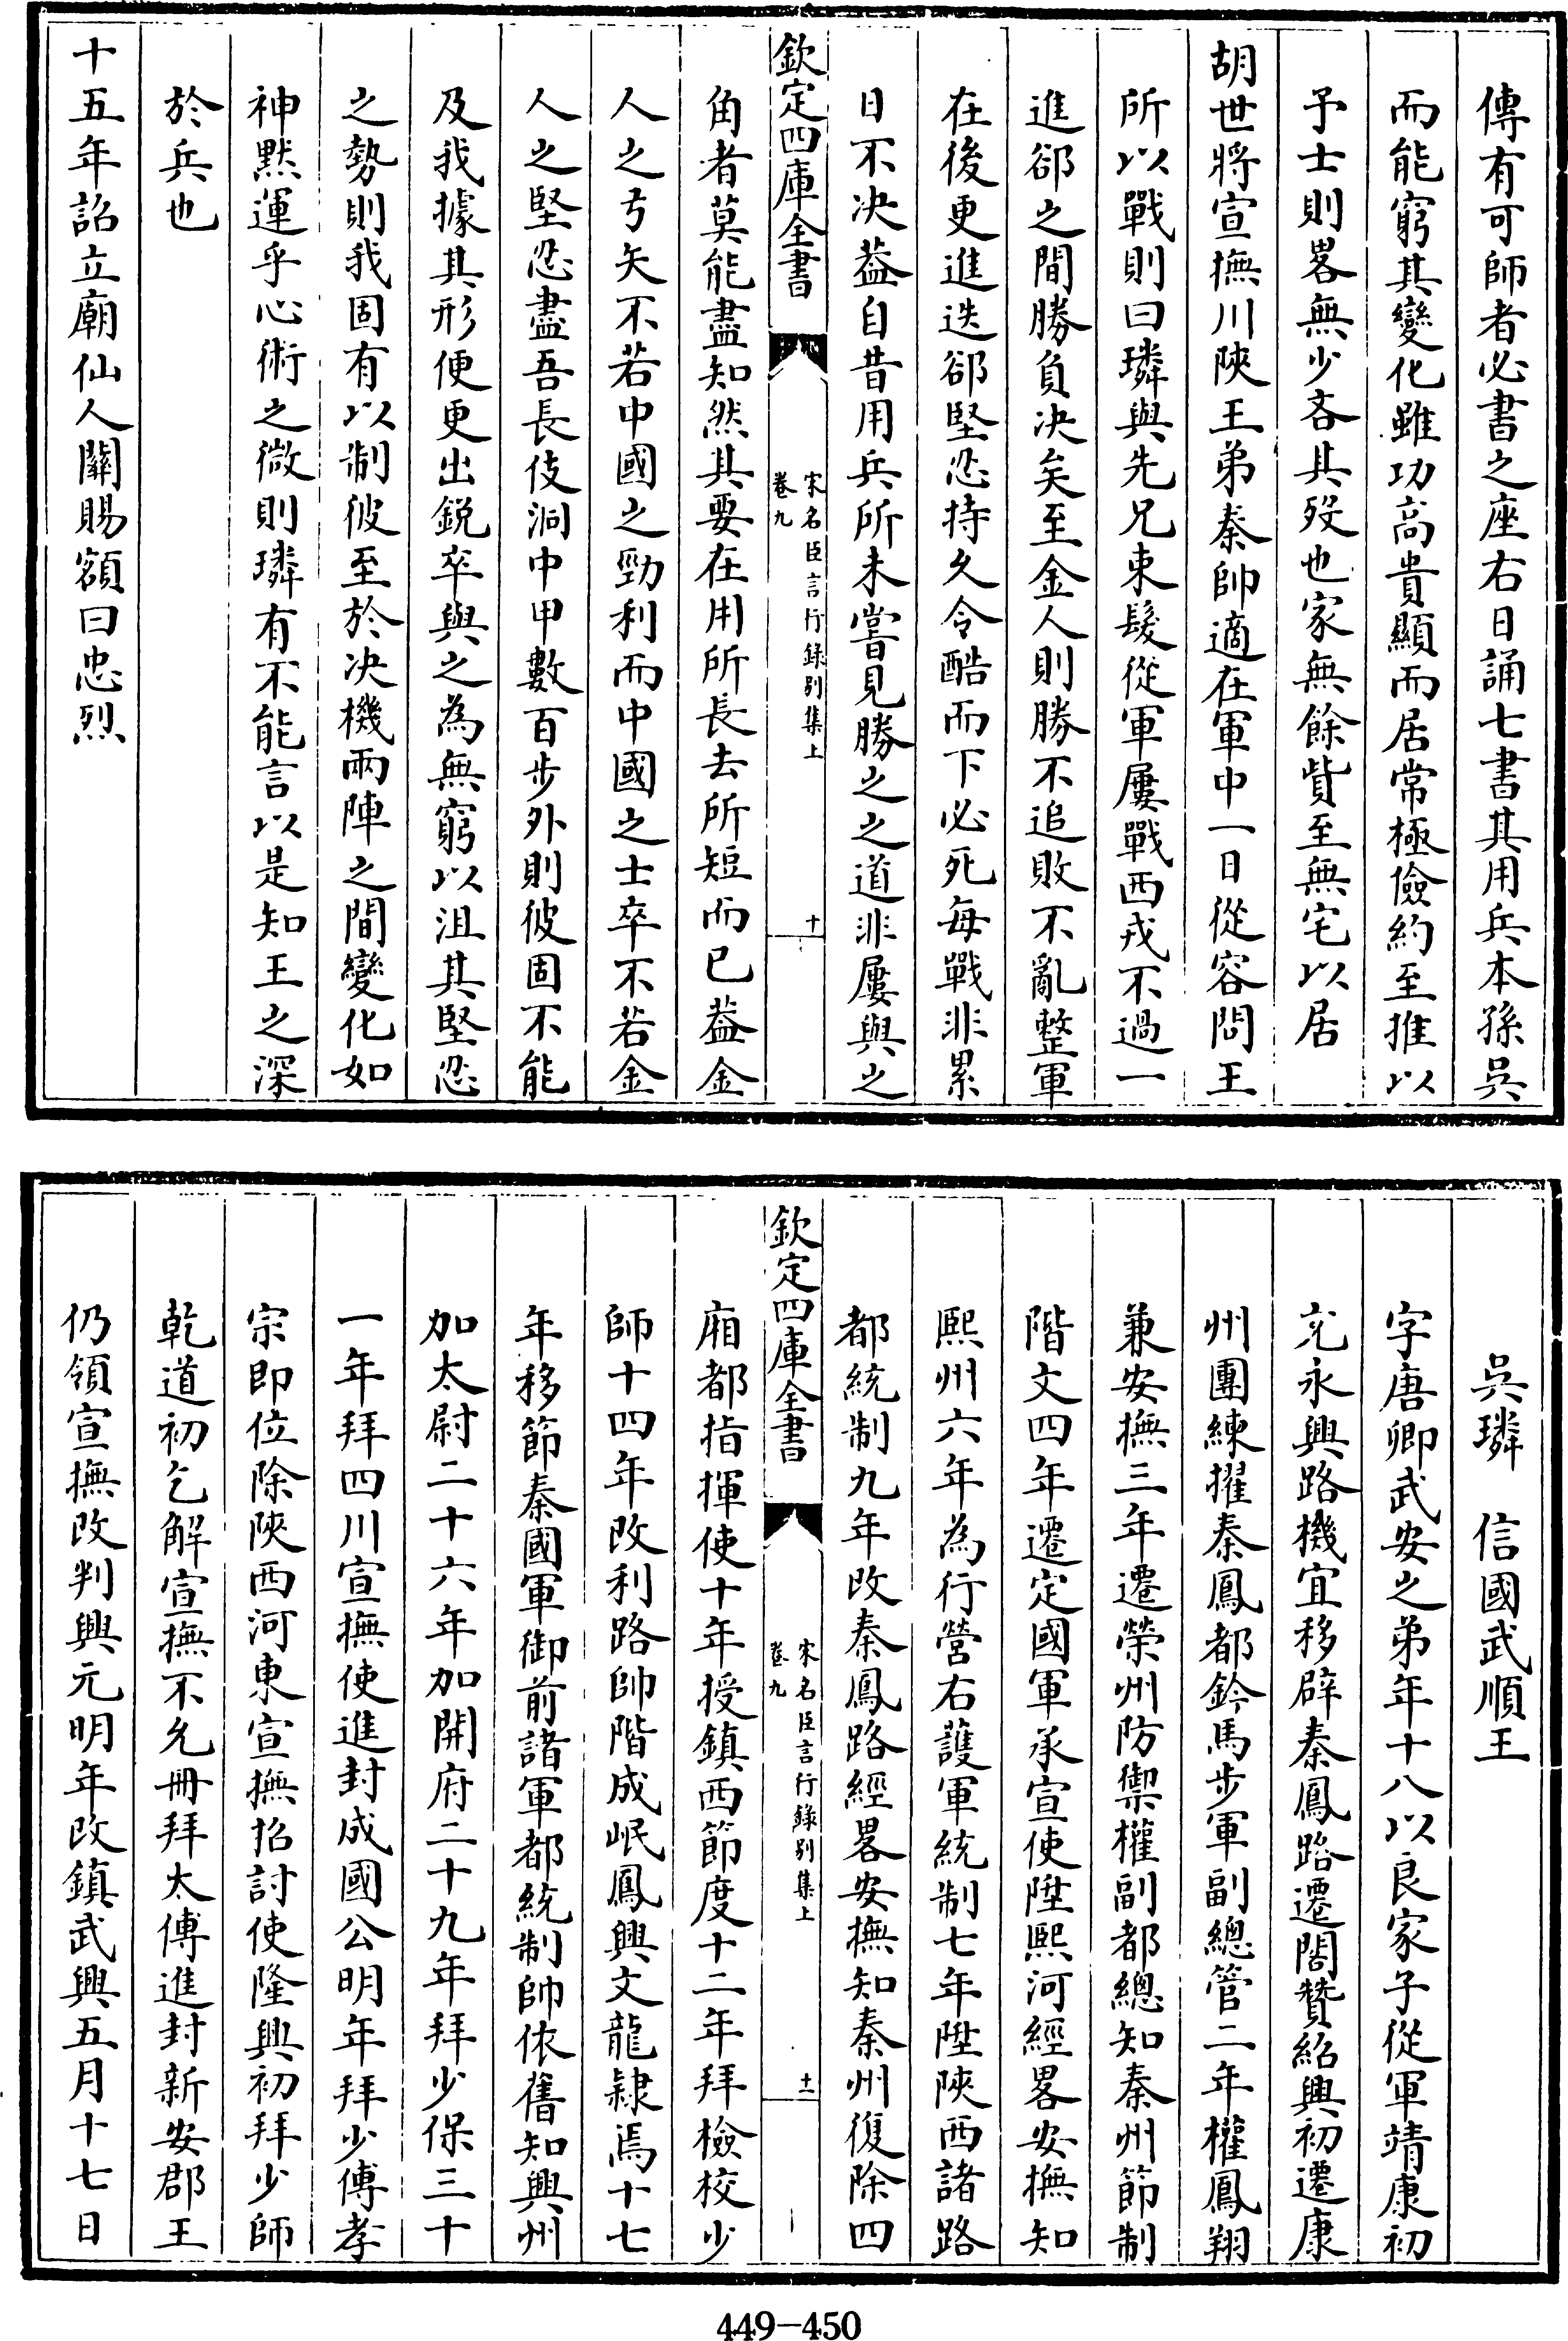 傳有可師者必書之座右日誦七書其用兵本孫吳
而能窮其變化雖功高貴顯而居常極儉約至推以
予士則畧無少吝其歿也家無餘貲至無宅以居
胡世將宣撫川陜王弟秦帥適在軍中一日從容問王
所以戰則曰璘與先兄束髮從軍屢戰西戎不過一
進郤之間勝負决矣至金人則勝不追敗不亂整軍
在後更進迭郤堅忍持久令酷而下必死每戰非累
日不决葢自昔用兵所未嘗見勝之之道非屢與之
欽定四庫全書
宋名臣言行錄别集上
卷九
十
角者莫能盡知然其要在用所長去所短而已葢金
人之弓矢不若中國之勁利而中國之士卒不若金
人之堅忍盡吾長伎洞中甲數百步外則彼固不能
及我據其形便更出鋭卒與之為無窮以沮其堅忍
之勢則我固有以制彼至於决機兩陣之間變化如
神默運乎心術之微則璘有不能言以是知王之深
於兵也
十五年詔立廟仙人關賜額曰忠烈
吳璘　信國武順王
字唐卿武安之弟年十八以良家子從軍靖康初
充永興路機宜移辟秦鳳路遷閤贊紹興初遷康
州團練擢秦鳳都鈐馬步軍副總管二年權鳳翔
兼安撫三年遷榮州防禦權副都總知秦州節制
階文四年遷定國軍承宣使陞熙河經畧安撫知
熙州六年為行營右護軍統制七年陞陜西諸路
都統制九年改秦鳳路經畧安撫知秦州復除四
欽定四庫全書
宋名臣言行錄别集上
卷九
十一
廂都指揮使十年授鎮西節度十二年拜檢校少
師十四年改利路帥階成岷鳳興文龍隸焉十七
年移節秦國軍御前諸軍都統制帥依舊知興州
加太尉二十六年加開府二十九年拜少保三十
一年拜四川宣撫使進封成國公明年拜少傅孝
宗即位除陜西河東宣撫招討使隆興初拜少師
乾道初乞解宣撫不允冊拜太傅進封新安郡王
仍領宣撫改判興元明年改鎮武興五月十七日
449-450